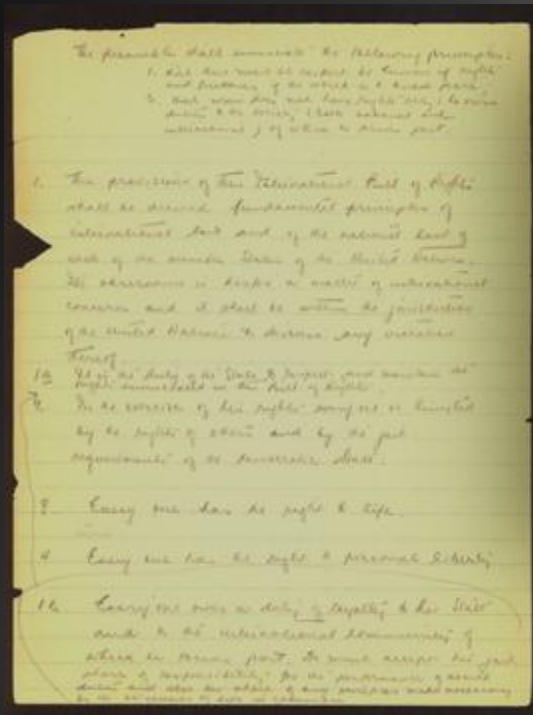 The preamble shall enunciate the following principles:
1. that there must be respect for human rights
and freedoms if the world is to have peace
2. that man does not have rights only; he owes
duties to the society (both national and
international) of which he forms part.
1. The provisions of this International Bill of Rights
shall be deemed fundamental principles of
international law and of the national law of
each of the member States of the United Nations.
Its observance is a matter of international
concern and it shall be within the jurisdiction
of the United Nations to discuss any violation
thereof
1a It is the duty of the State to respect and maintain the
rights enunciated in this Bill of Rights.
2. In the exercise of his rights everyone is limited
by the rights of others and by the just
requirements of the democratic State.
3 Every one has the right to life.
4 Every one has the right to personal liberty
16 Every one owes a duty of loyalty to his State
and to the international community of
which he forms part. He must accept his just
share of responsibility for the performance of
duties and his share of any sacrifices made necessary
by the